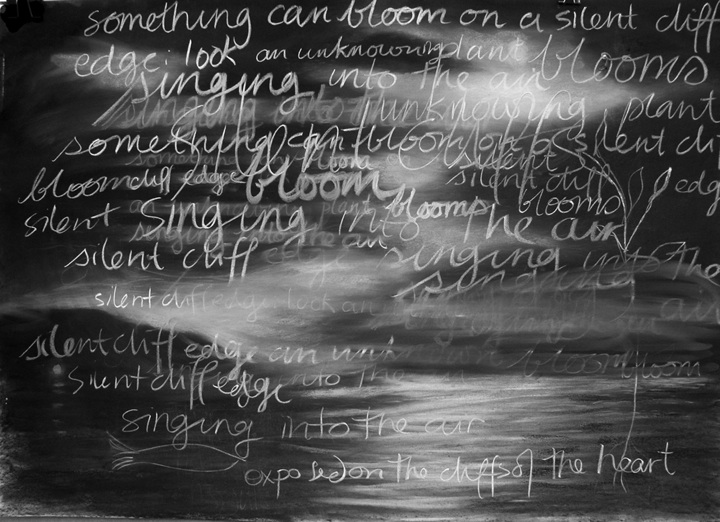 something can bloom on a silent cliff
edge: look an unknowing plant blooms
singing into the air
singing into unknowing plant
something can bloom on a silent cli
something can bloom on silent
bloom cliff edge bloom silent cliff edg
blooms blooms
silent singing into the air
singing into the air
silent cliff edge singing into the
singing
silent cliff edge: look an air
silent cliff edge an unknown bloom bloom
silent cliff edge into the
singing into the air
exposed on the cliffs of the heart